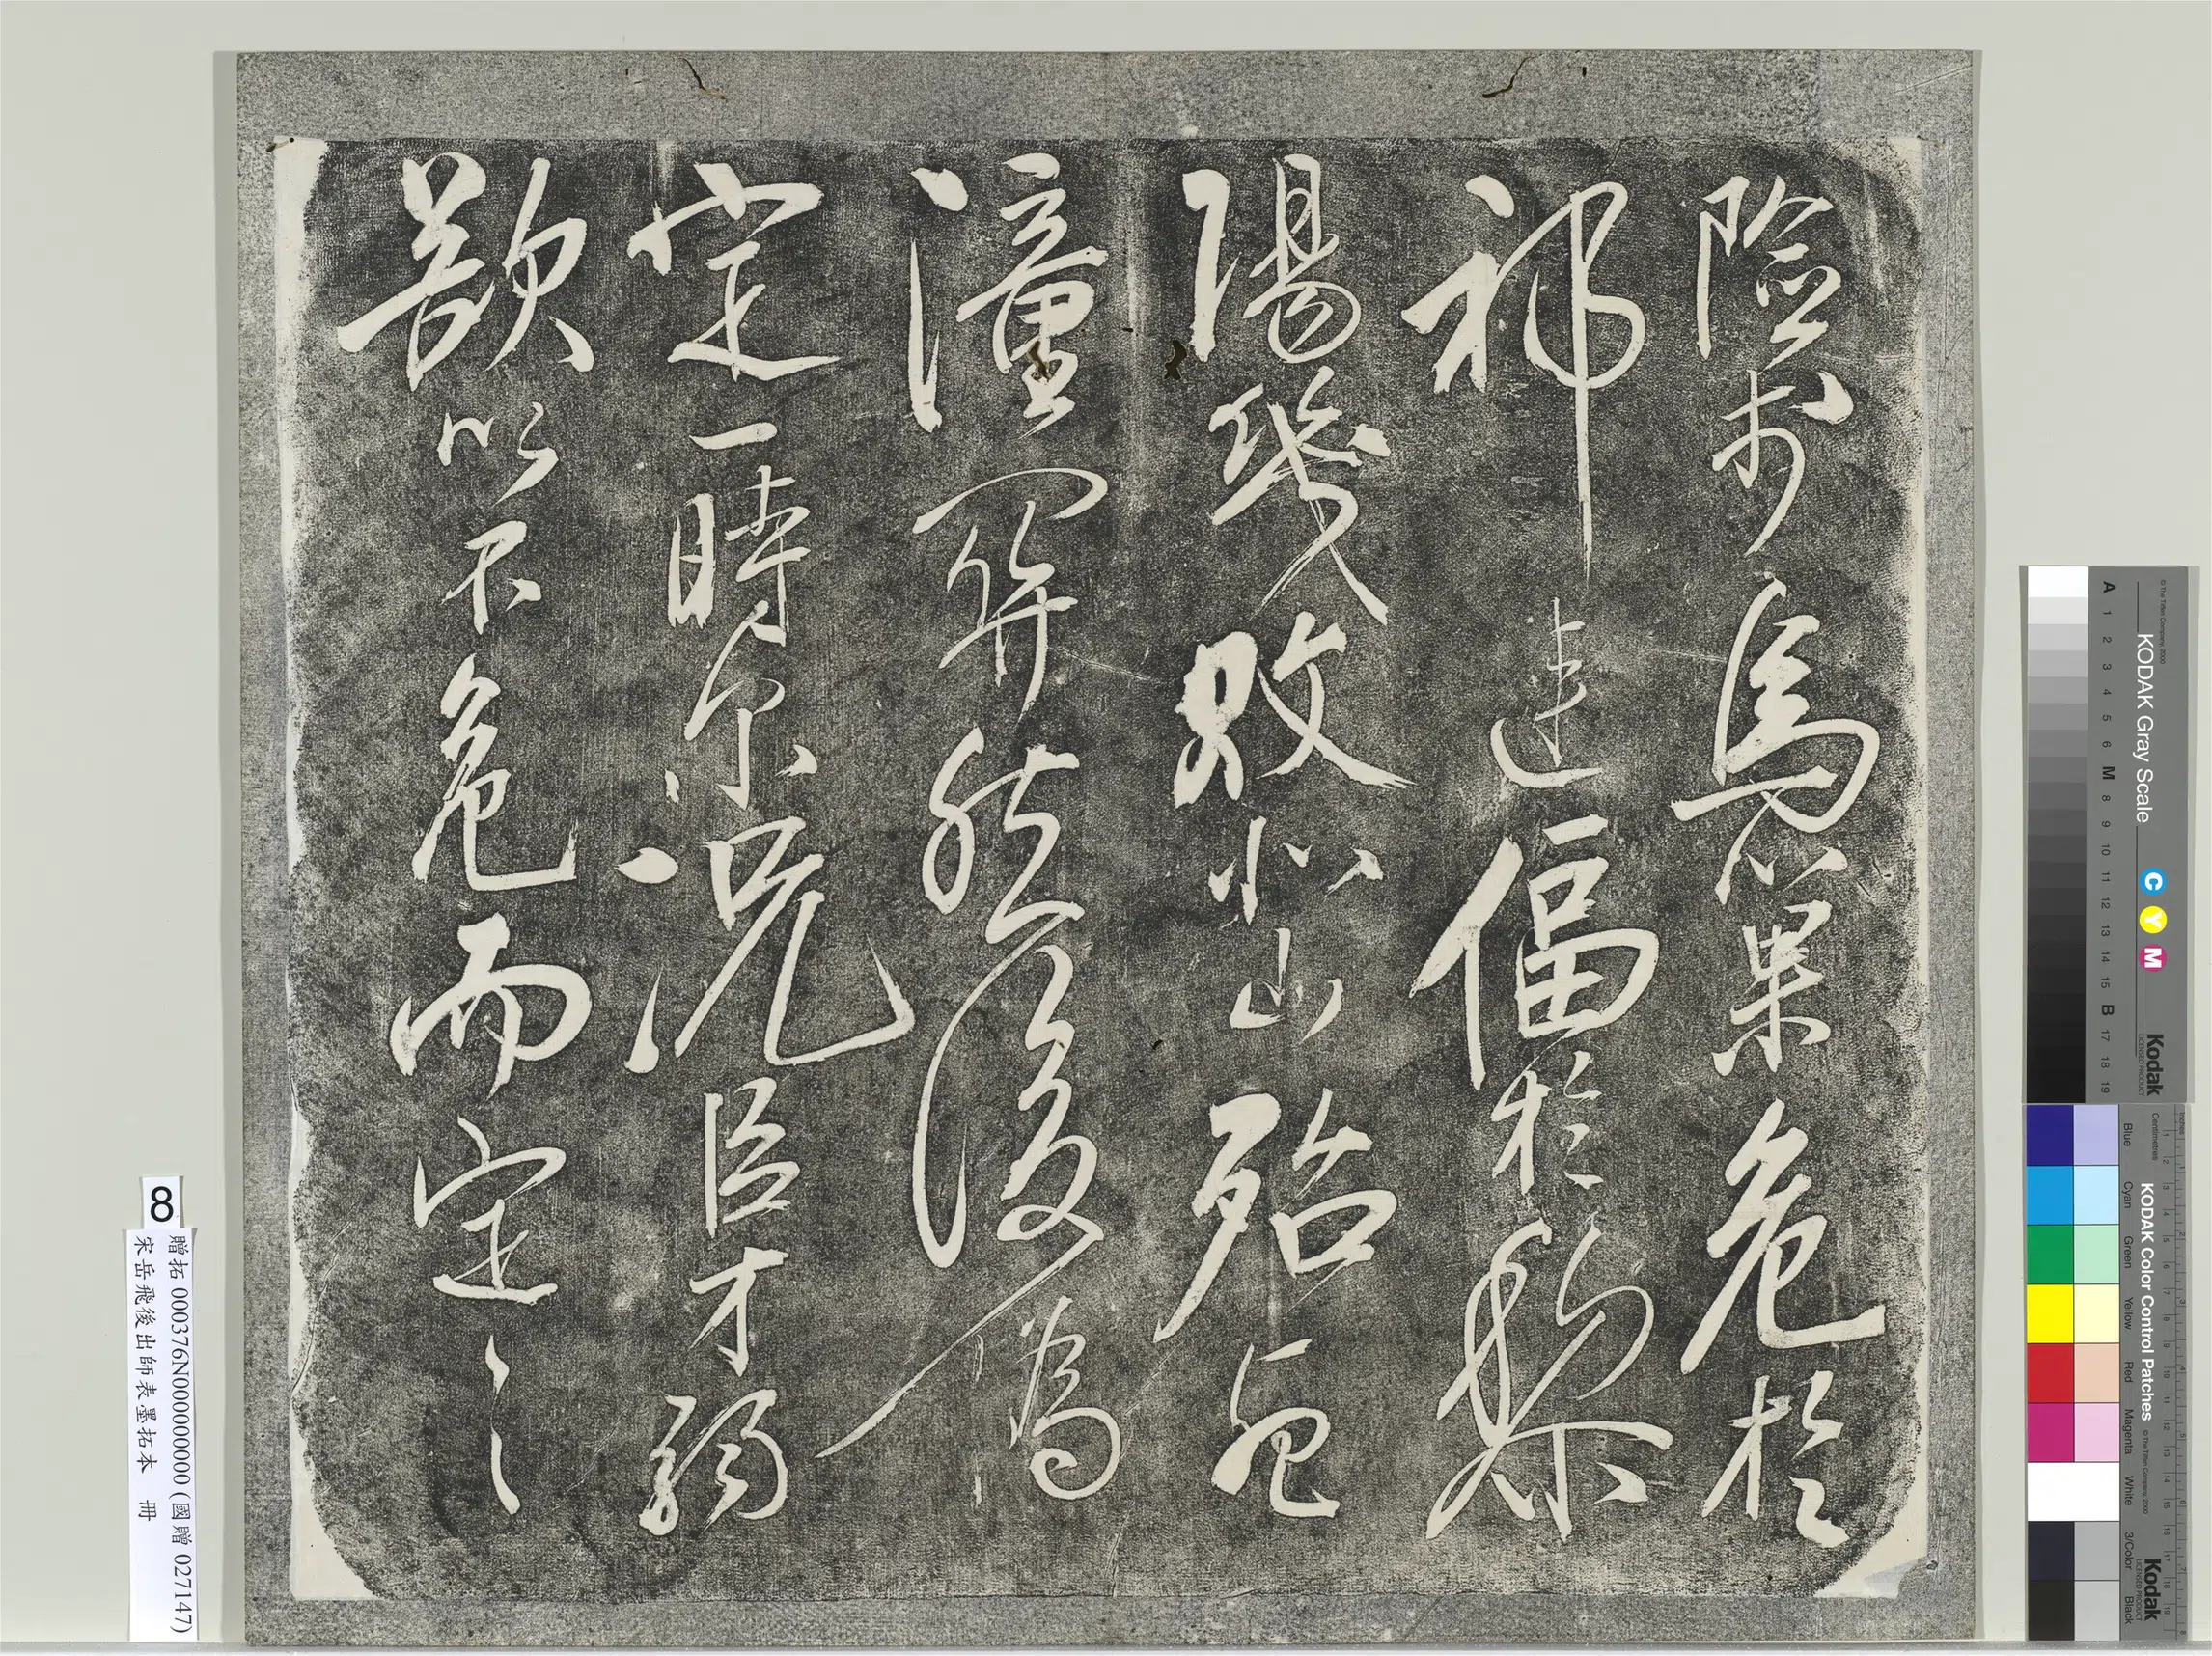 險於烏巢危於
祁連偪於黎
陽幾敗北山殆死
潼關然後偽
定一時尔況臣才弱
欲以不危而定之
8
贈拓 000376N000000000 (國贈 027147)
宋岳飛後出師表墨拓本 冊
KODAK Gray Scale
© The Tiffen Company, 2000
A 1 2 3 4 5 6 M 8 9 10 11 12 13 14 15 B 17 18 19
C Y M
Kodak
LICENSED PRODUCT
KODAK Color Control Patches
© The Tiffen Company, 2000
Centimetres
Blue Cyan Green Yellow Red Magenta White 3/Color Black
Kodak
LICENSED PRODUCT